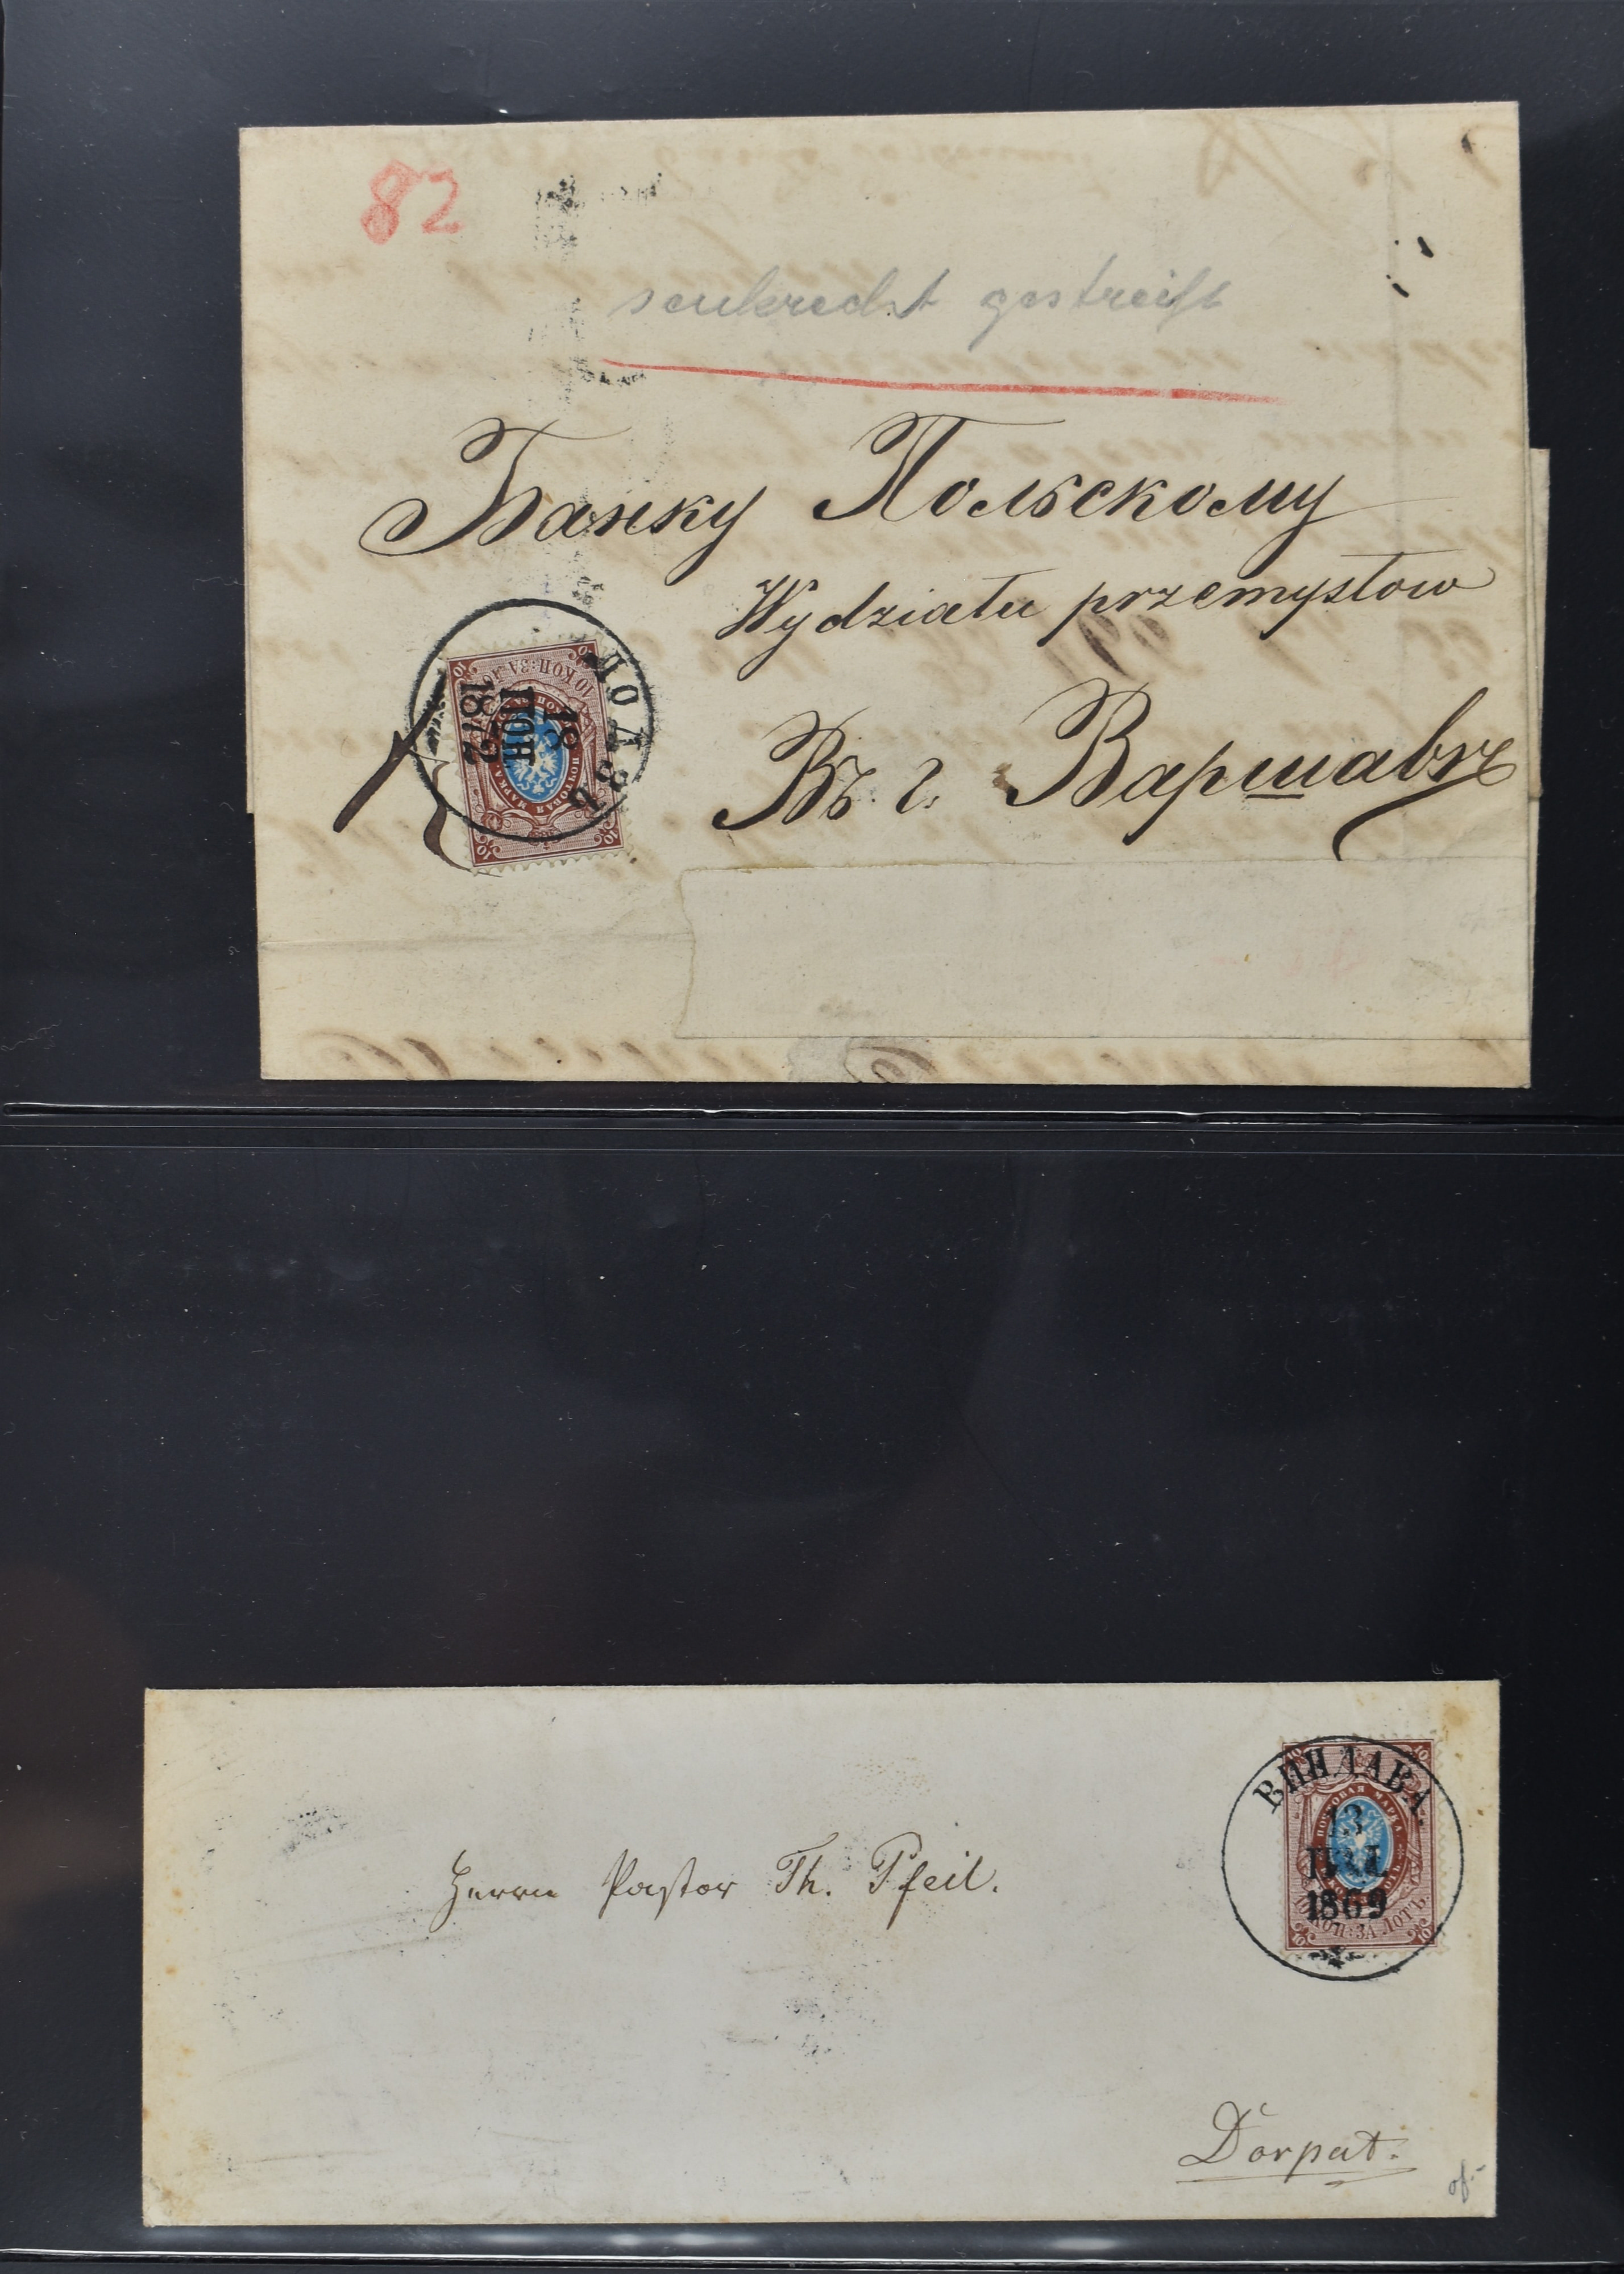 82
senkrecht gestreift
Банку Польскому
Wydziału przemysłow
Въ г. Варшавѣ
ЛОДЗЬ
18
ІЮН
1872
10 КОП: ЗА
ПОЧТОВАЯ МАРКА
ВИНДАВА
13
1869
ПОЧТОВАЯ МАРКА
10 КОП: ЗА ЛОТЪ
Herrn Pastor Th. Pfeil.
Dorpat.